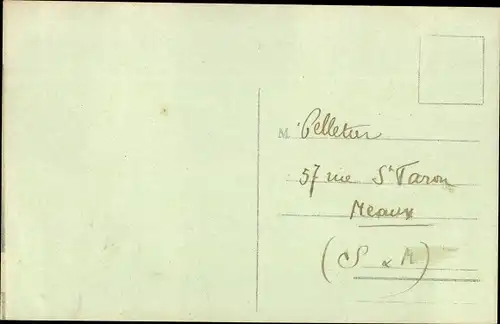 M. Pelletier
57 rue St Faron
Meaux
(S & M)